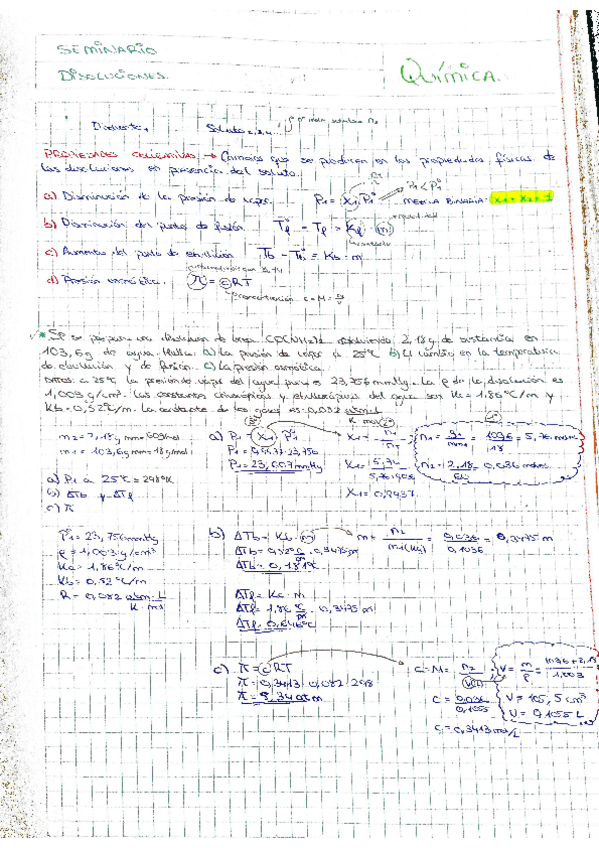 SEMINARIO
DISOLUCIONES.
QUÍMICA.
Disolvente 1
Soluto 2,3,4...
PROPIEDADES COLIGATIVAS → Cambios que se producen en las propiedades físicas de
las disoluciones en presencia del soluto.
a) Disminución de la presión de vapor. P1 = x1 P1° P1 < P1° MEZCLA BINARIA: x1 + x2 = 1
b) Disminución del punto de fusión. Tf° - Tf = Kf · m
molalidad
c) Aumento del punto de ebullición Tb - Tb° = Kb · m
d) Presión osmótica. π = cRT
concentración c = M = n/V
* Se prepara una disolución de urea CO(NH2)2 disolviendo 2,18 g de sustancia en
103,6 g de agua. Halla: a) La presión de vapor a 25°C b) El cambio en la temperatura
de ebullición y de fusión. c) La presión osmótica.
DATOS: a 25°C la presión de vapor del agua pura es 23,756 mmHg. La ρ de la disolución es
1,003 g/cm³. Las constantes crioscópicas y ebulloscópicas del agua son Kc = 1,86°C/m y
Kb = 0,52°C/m. La constante de los gases es 0,082 atm·L
K·mol
a) P1 = x1 · P1°
P1 = 23,607 mmHg
n1 = = 5,76 moles
n2 = 2,18 = 0,036 moles
a) P1 a 25°C = 298°K
b) ΔTb y ΔTf
c) π
P1° = 23,756 mmHg
ρ = 1,003 g/cm³
Kc = 1,86°C/m
Kb = 0,52°C/m
R = 0,082 atm·L
K·mol
b) ΔTb = Kb · m m = n2 / m1(kg) = 0,036 / 0,1036 = 0,3475 m
ΔTb = 0,52 °C/m · 0,3475 m
ΔTb = 0,181°C
ΔTf = Kc · m
ΔTf = 1,86 °C/m · 0,3475 m
ΔTf = 0,646°C
c) π = cRT c = M = n2 / V(L) V = m/ρ =
π = 0,3413 · 0,082 · 298
π = 8,34 atm
c = 0,036 / 0,1055
V = 105,5 cm³
V = 0,1055 L
c = 0,3413 mol/L